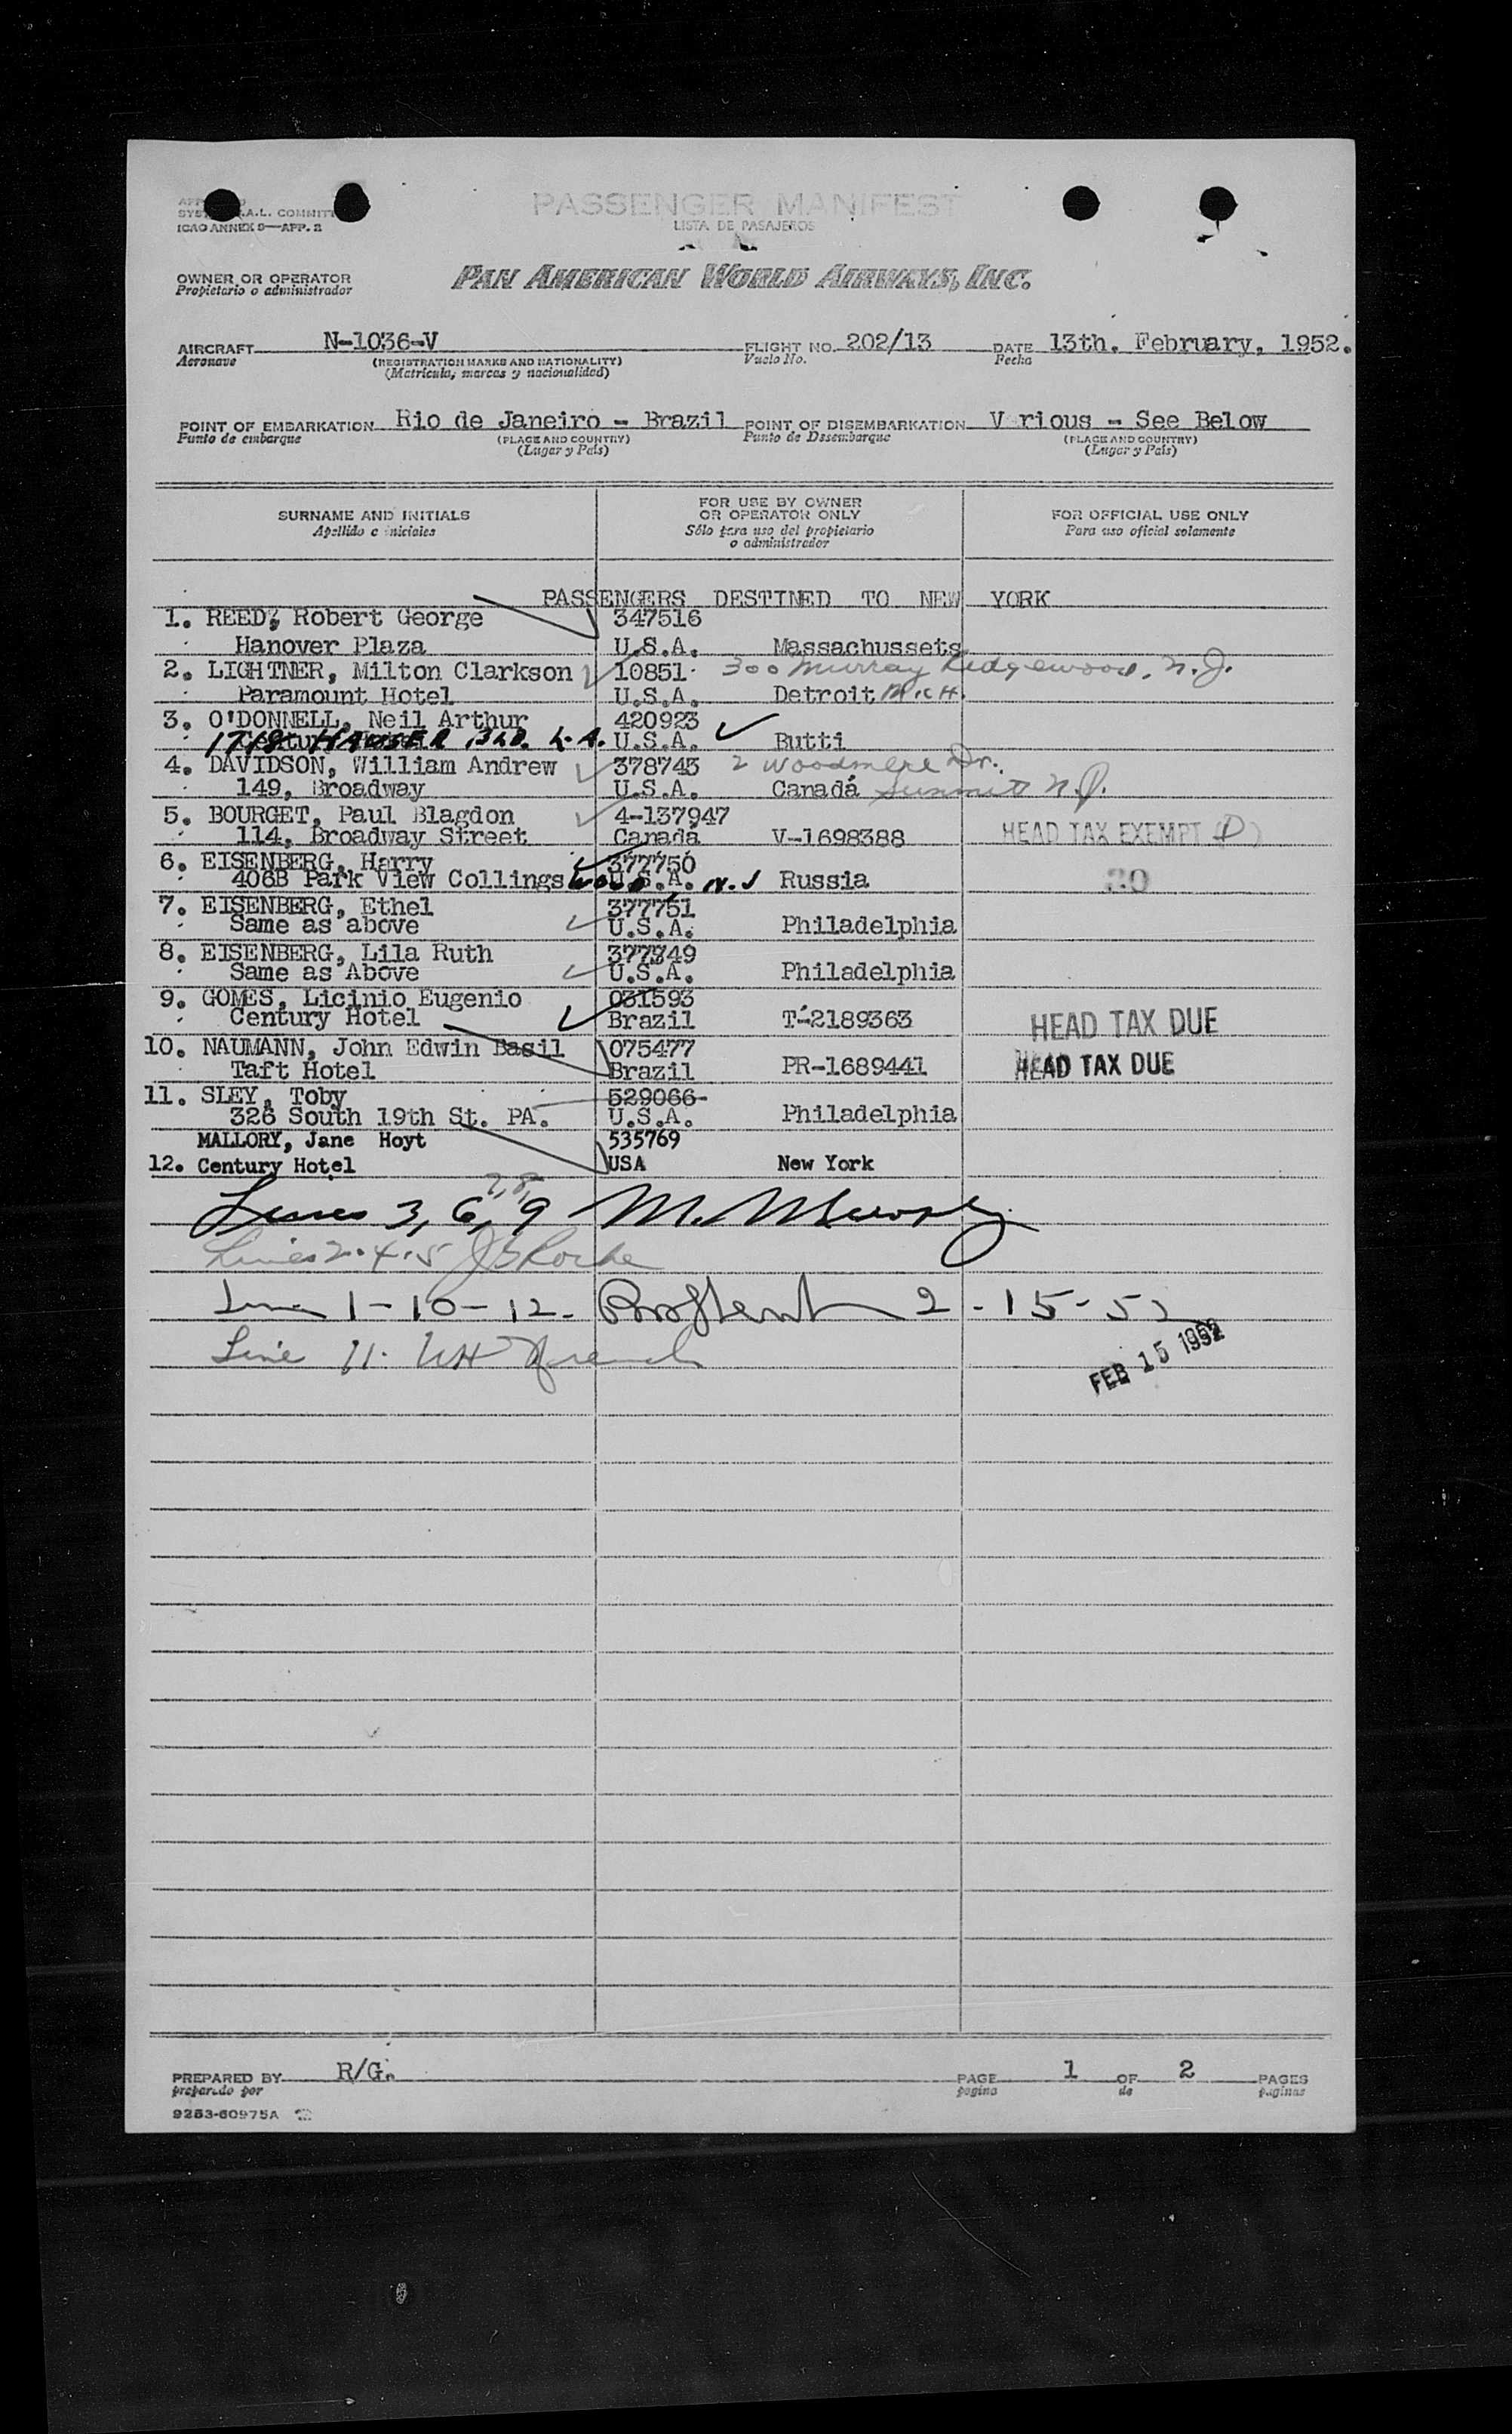 PASSENGER MANIFEST
LISTA DE PASAJEROS
ICAO ANNEX 9—APP. 2
OWNER OR OPERATOR
Propietario o administrador
PAN AMERICAN WORLD AIRWAYS, INC.
AIRCRAFT N-1036-V FLIGHT NO. 202/13 DATE 13th. February, 1952.
Aeronave (REGISTRATION MARKS AND NATIONALITY) Vuelo No. Fecha
(Matricula, marcas y nacionalidad)
POINT OF EMBARKATION Rio de Janeiro - Brazil POINT OF DISEMBARKATION V rious - See Below
Punto de embarque (PLACE AND COUNTRY) Punto de Desembarque (PLACE AND COUNTRY)
(Lugar y País) (Lugar y País)
SURNAME AND INITIALS FOR USE BY OWNER OR OPERATOR ONLY FOR OFFICIAL USE ONLY
Apellido e iniciales Sólo para uso del propietario o administrador Para uso oficial solamente
PASSENGERS DESTINED TO NEW YORK
1. REED, Robert George 347516
Hanover Plaza U.S.A. Massachussets
2. LIGHTNER, Milton Clarkson 10851 300 Murray Ridgewood, N.J.
Paramount Hotel U.S.A. Detroit Mich.
3. O'DONNELL, Neil Arthur 420923
HAUSER Bld. L.A. U.S.A. Butti
4. DAVIDSON, William Andrew 378743 2 Woodmere Dr.
149, Broadway U.S.A. Canadá Summit N.J.
5. BOURGET, Paul Blagdon 4-137947
114, Broadway Street Canadá V-1698388 HEAD TAX EXEMPT (D)
6. EISENBERG, Harry 377750
406B Park View Collingswood U.S.A. N.J Russia 20
7. EISENBERG, Ethel 377751
Same as above U.S.A. Philadelphia
8. EISENBERG, Lila Ruth 377749
Same as Above U.S.A. Philadelphia
9. GOMES, Licinio Eugenio 031593
Century Hotel Brazil T-2189363 HEAD TAX DUE
10. NAUMANN, John Edwin Basil 075477
Taft Hotel Brazil PR-1689441 HEAD TAX DUE
11. SLEY, Toby 529066-
326 South 19th St. PA. U.S.A. Philadelphia
MALLORY, Jane Hoyt 535769
12. Century Hotel USA New York
7,8,
Lines 3, 6, 9 M. Murphy
Lines 2.4.5 J Roche
Line 1-10-12. 2-15-52
Line 11.
FEB 15 1952
PREPARED BY R/G. PAGE 1 OF 2 PAGES
preparado por pagina de paginas
9253-60975A